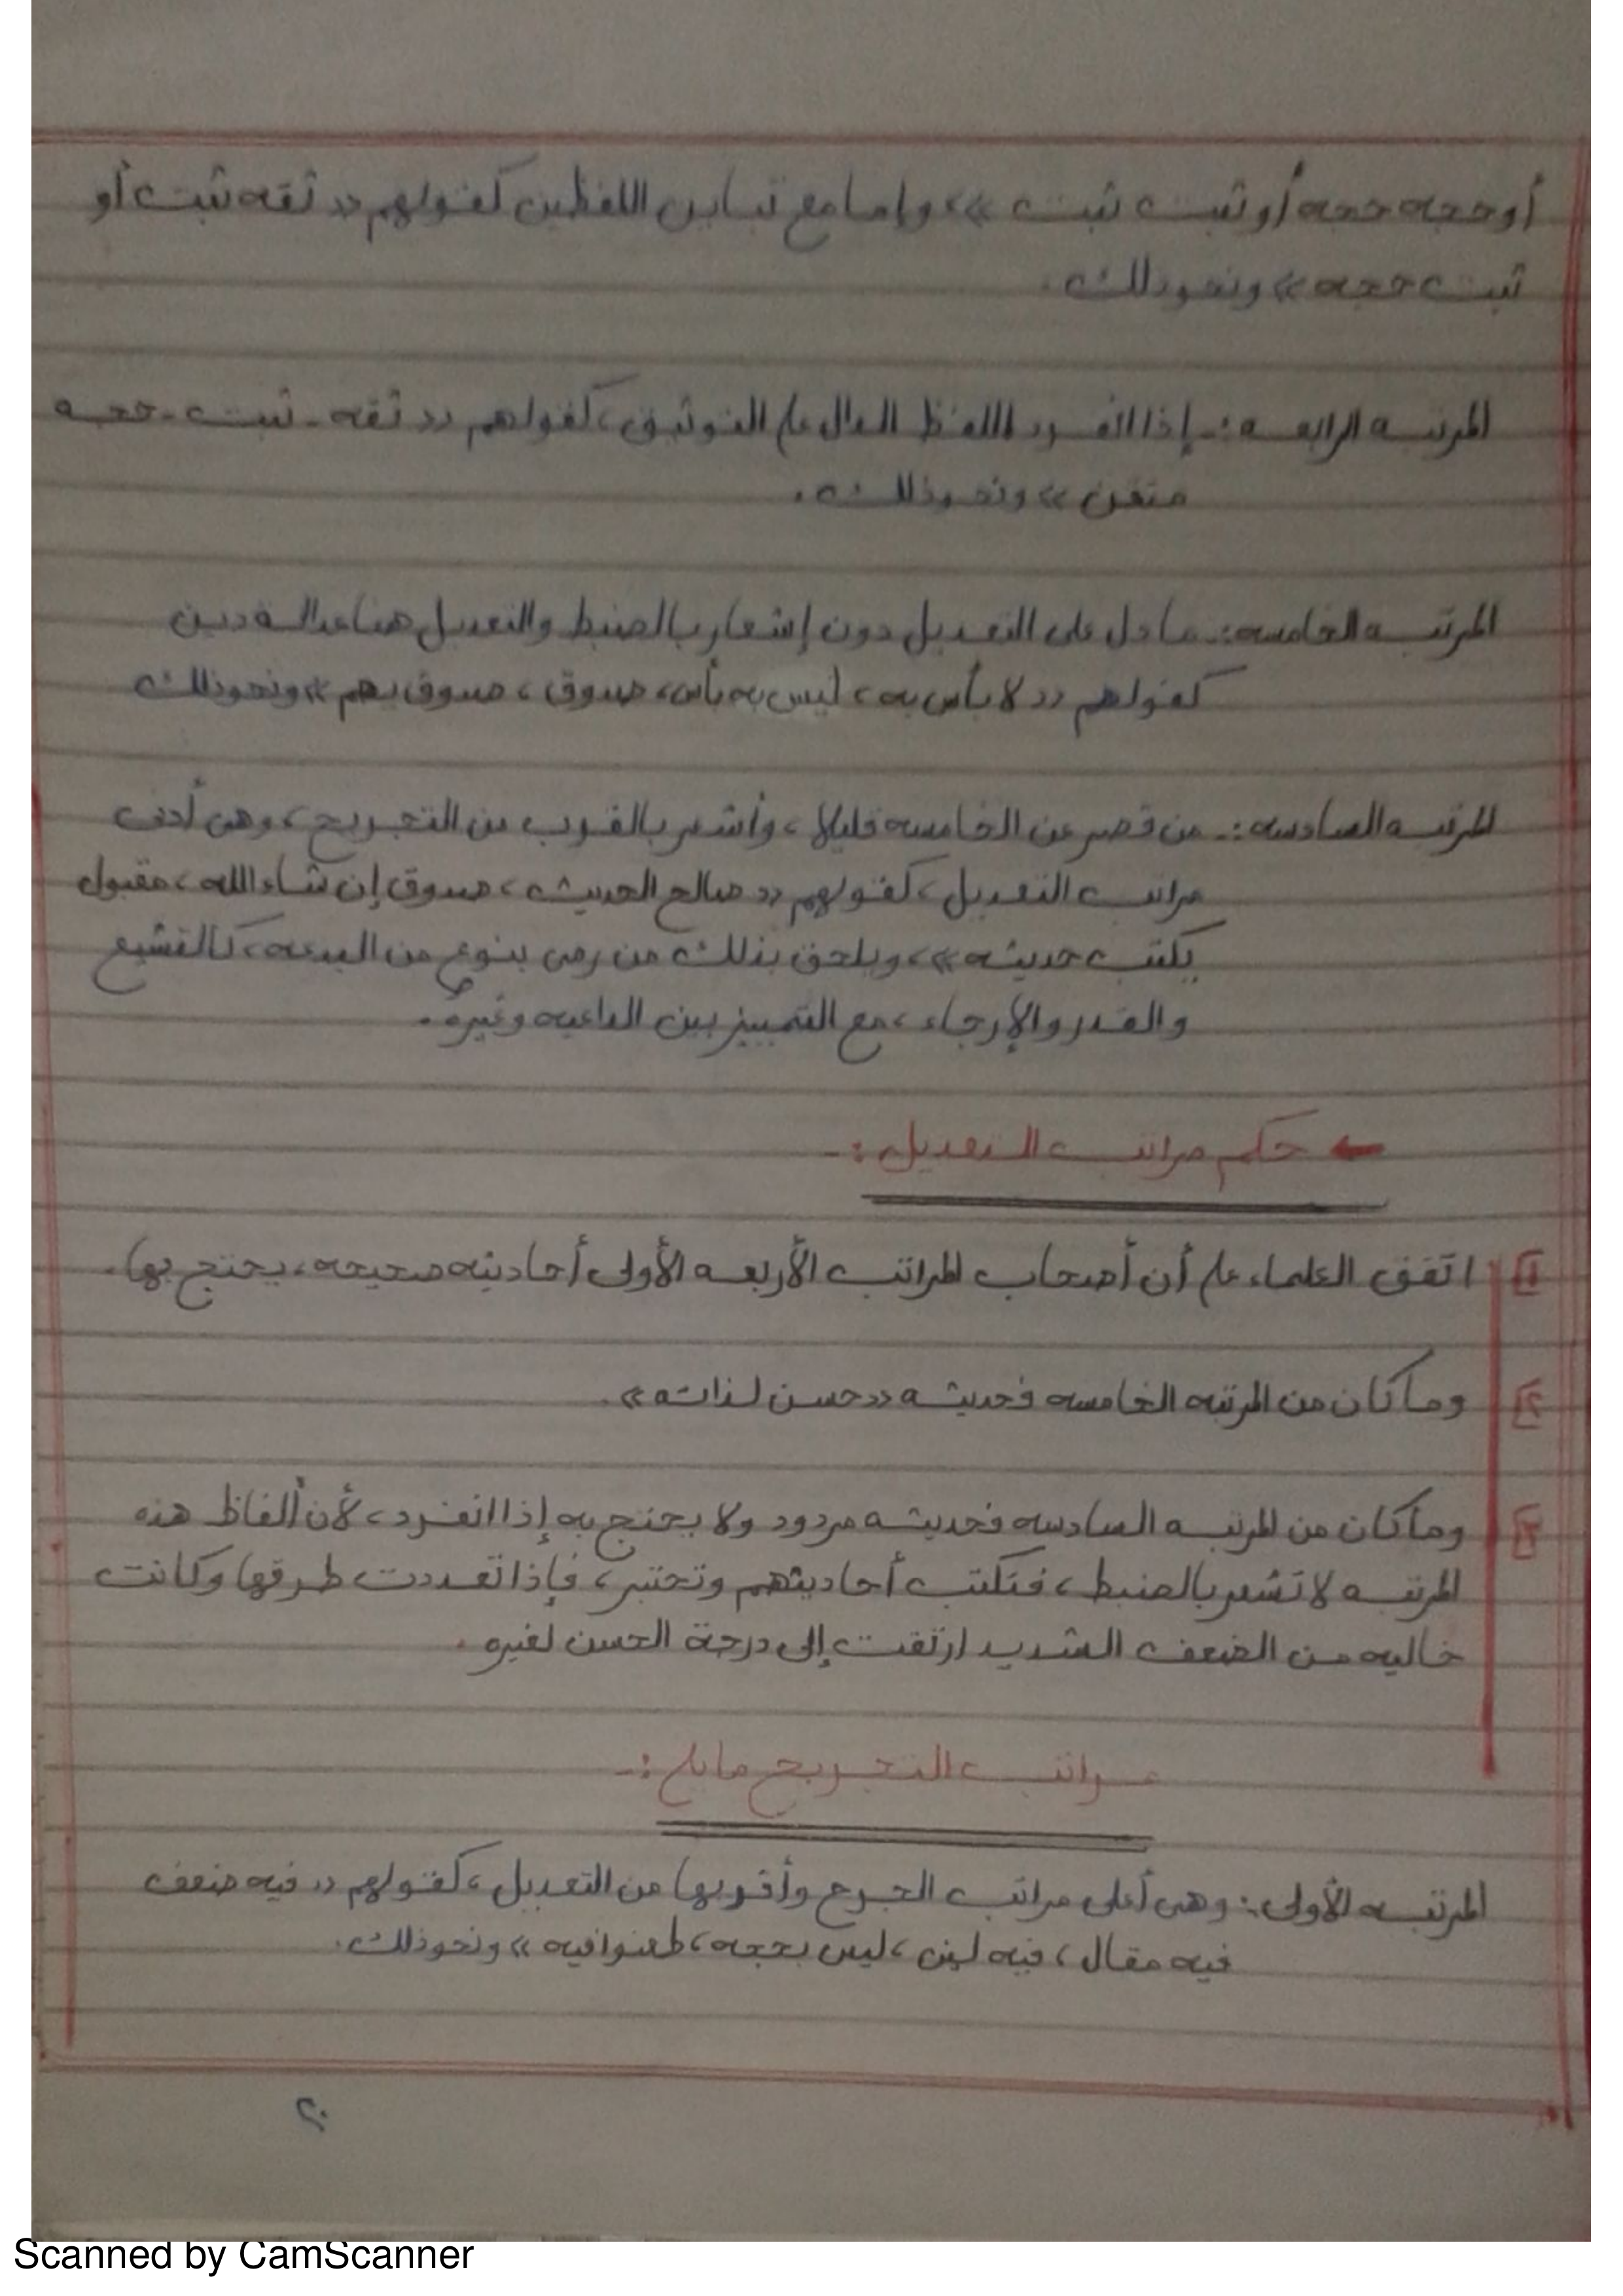 أو حجه حجه أو ثبت ثبت »، وإما مع تباين اللفظين كقولهم « ثقه ثبت أو
ثبت حجه » ونحو ذلك.
المرتبه الرابعه :- إذا انفرد اللفظ الدال على التوثيق، كقولهم « ثقه - ثبت - حجه
متقن » ونحو ذلك.
المرتبه الخامسه :- ما دل على التعديل دون إشعار بالضبط والتعديل هنا عدالة دين
كقولهم « لا بأس به، ليس به بأس، صدوق، صدوق يهم » ونحو ذلك
المرتبه السادسه :- من قصر عن الخامسه قليلا، وأشعر بالقرب من التجريح، وهى أدنى
مراتب التعديل، كقولهم « صالح الحديث، صدوق إن شاء الله، مقبول
يكتب حديثه »، ويلحق بذلك من رمى بنوع من البدعه، كالتشيع
والقدر والإرجاء، مع التمييز بين الداعيه وغيره.
← حكم مراتب التعديل :-
١ اتفق العلماء على أن أصحاب المراتب الأربعه الأولى أحاديثه صحيحه، يحتج بها.
٢ وما كان من المرتبه الخامسه فحديثه « حسن لذاته ».
٣ وما كان من المرتبه السادسه فحديثه مردود ولا يحتج به إذا انفرد، لأن ألفاظ هذه
المرتبه لا تشعر بالضبط، فتكتب أحاديثهم وتختبر، فإذا تعددت طرقها وكانت
خاليه من الضعف الشديد ارتقت إلى درجة الحسن لغيره.
مراتب التجريح ما يلى :-
المرتبه الأولى :- وهى أعلى مراتب الجرح وأقربها من التعديل، كقولهم « فيه ضعف
فيه مقال، فيه لين، ليس بحجه، طعنوا فيه » ونحو ذلك.
٢٠
Scanned by CamScanner